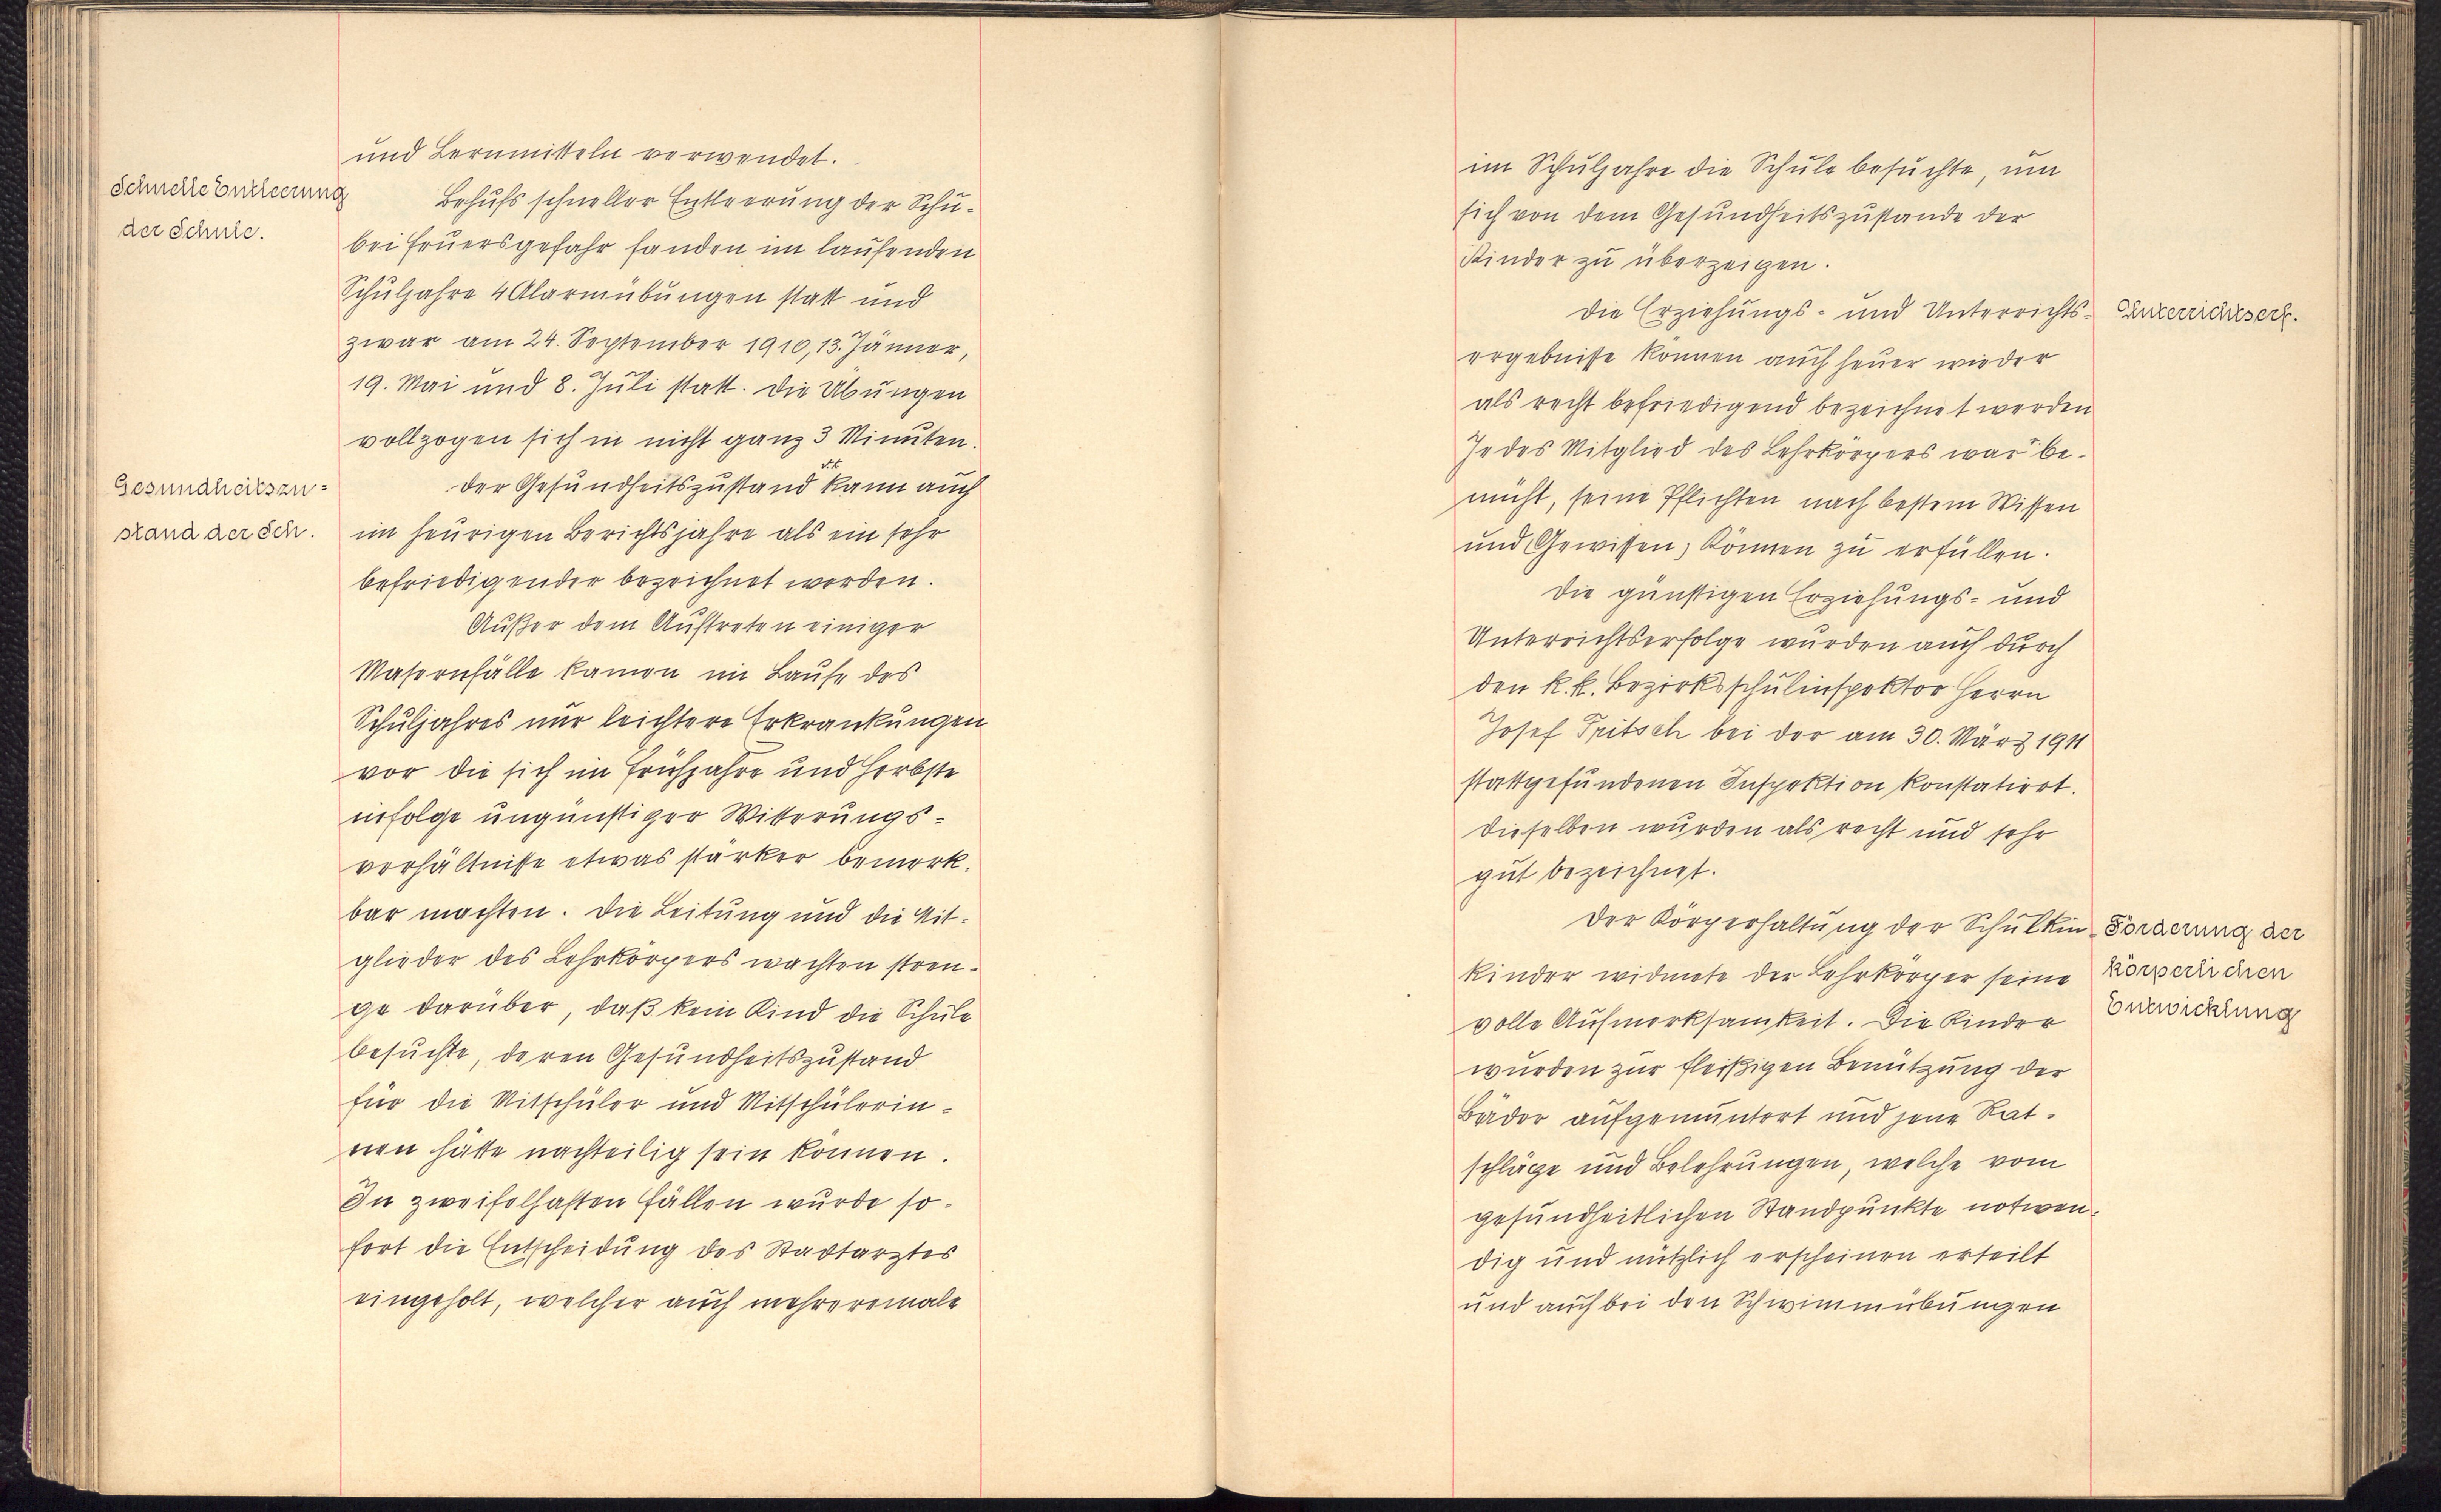 und Lernmitteln verwendet.
Schnelle Entleerung
der Schule.
Behufs schneller Entleerung der Schu-
bei Feuersgefahr fanden im laufenden
Schuljahre 4 Alarmübungen statt und
zwar am 24. September 1910, 13. Jänner,
19. Mai und 8. Juli statt. Die Übungen
vollzogen sich in nicht ganz 3 Minuten.
Gesundheitszu-
stand der Sch.
Der Gesundheitszustand kann auch
im heurigen Berichtsjahre als ein sehr
befriedigender bezeichnet werden.
Außer dem Auftreten einiger
Masernfälle kamen im Laufe des
Schuljahres nur leichtere Erkrankungen
vor die sich im Frühjahre und Herbste
infolge ungünstiger Witterungs-
verhältnisse etwas stärker bemerk-
bar machten. Die Leitung und die Mit-
glieder des Lehrkörpers wachten stren-
ge darüber, daß kein Kind die Schule
besuchte, deren Gesundheitszustand
für die Mitschüler und Mitschülerin-
nen hätte nachteilig sein können.
In zweifelhaften Fällen wurde so-
fort die Entscheidung des Stadtarztes
eingeholt, welcher auch mehreremale
im Schuljahre die Schule besuchte, um
sich von dem Gesundheitszustande der
Kinder zu überzeigen.
Die Erziehungs- und Unterrichts-
Unterrichtserf.
ergebnisse können auch heuer wieder
als recht befriedigend bezeichnet werden
Jedes Mitglied des Lehrkörpers war be-
müht, seine Pflichten nach bestem Wissen
und Gewissen, Können zu erfüllen.
Die günstigen Erziehungs- und
Unterrichtserfolge wurden auch durch
den k. k. Bezirksschulinspektor Herrn
Josef Fritsch bei der am 30. März 1911
stattgefundenen Inspektion konstatiert.
Dieselben wurden als recht und sehr
gut bezeichnet.
Der Körperhaltung der Schulkin-
kinder widmete der Lehrkörper seine
volle Aufmerksamkeit. Die Kinder
Förderung der
körperlichen
Entwicklung
wurden zur fleißigen Benützung der
Bäder aufgemuntert und jene Rat-
schläge und Belehrungen, welche vom
gesundheitlichen Standpunkte notwen-
dig und nützlich erscheinen erteilt
und auch bei den Schwimmübungen